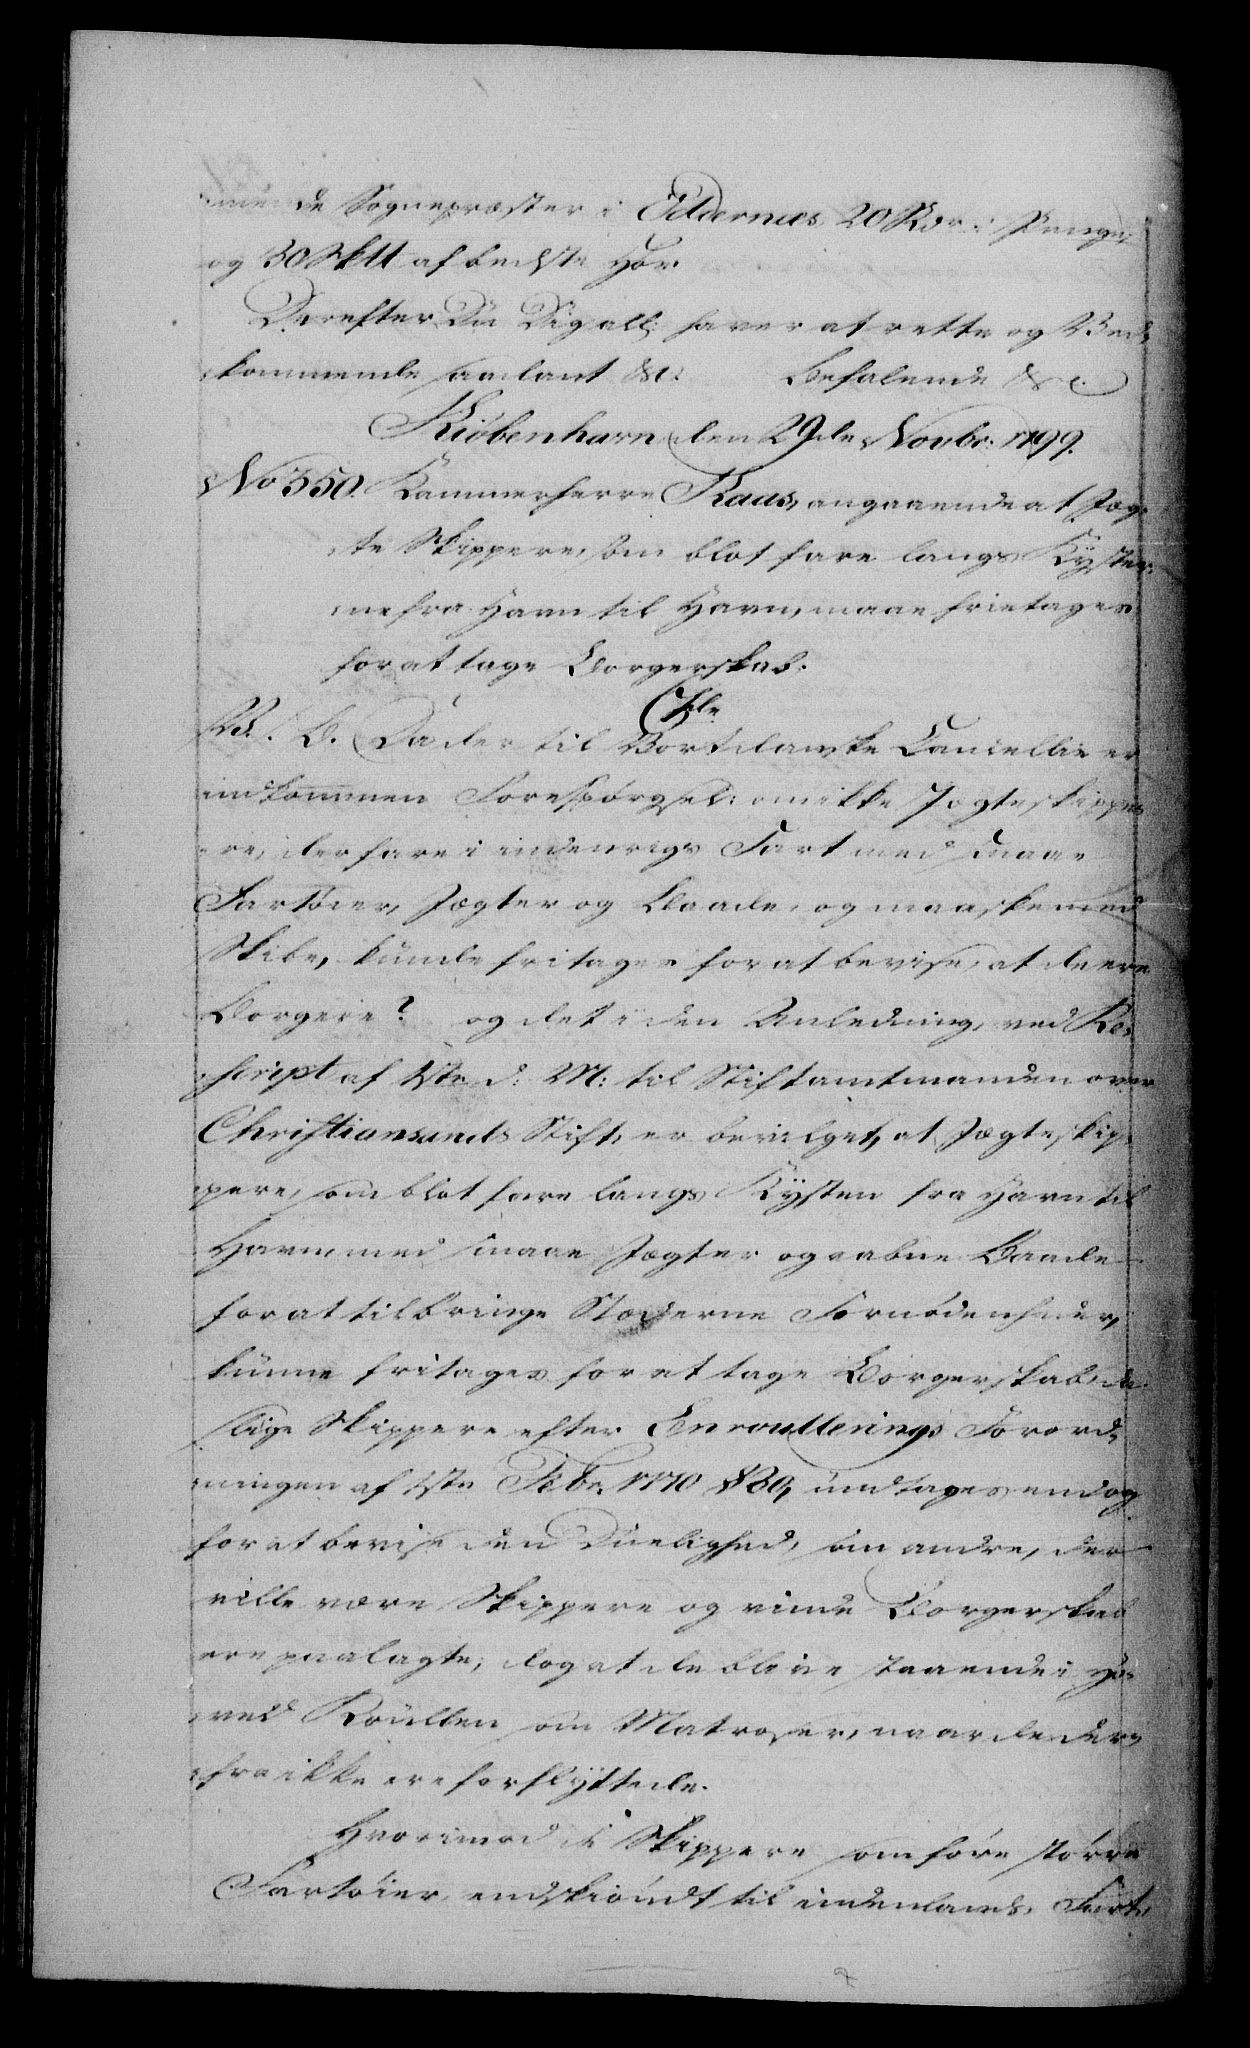 mende Sognepræster i Eddernæs 20 Rdr i Penge,
og 30 Sk lt af bedste Hør.
Derefter Du Dig all: haver at rette og Ved-
kommende saadant &c: Befalende &c.
Kiøbenhavn den 29de Novbr: 1799.
No 350. Kammerherre Kaas, angaaende at Jæg-
te Skippere, som blot fare langs Kyster-
ne fra Havn til Havn, maae frietages
for at tage Borgerskab.
V. G. B. Da der til Vort danske Cancellie er
indkommen Forespørgsel: om ikke Jagteskippe-
re, der fare i indenrigs Fart med smaae
Fartøier, Jægter og Baade, og maaskee med
Skibe, kunde fritages for at bevise, at de ere
Borgere? og det i den Anledning, ved Re-
script af 1ste d: M: til Stiftamtmanden over
Christiansands Stift, er bevilget, at Jægteskip-
pere, som blot fare langs Kysten fra Havn til
Havn, med smaae Jægter og aabne Baade
for at tilbringe Stæderne Fornødenheder,
kunne fritages for at tage Borgerskab, da
slige Skippere efter Enroullerings Forord-
ningen af 1ste Febr. 1770 § 39, undtages endog
for at bevise den Duelighed, som andre, der
ville være Skippere og vinde Borgerskab
ere paalagte; dog at de blive staaende i Ho-
ved Roullen som Matroser, naar de der-
fra ikke ere forflyttede.
Hvorimod de Skippere som føre større
Fartøier, endskiøndt til indenlands Fart,